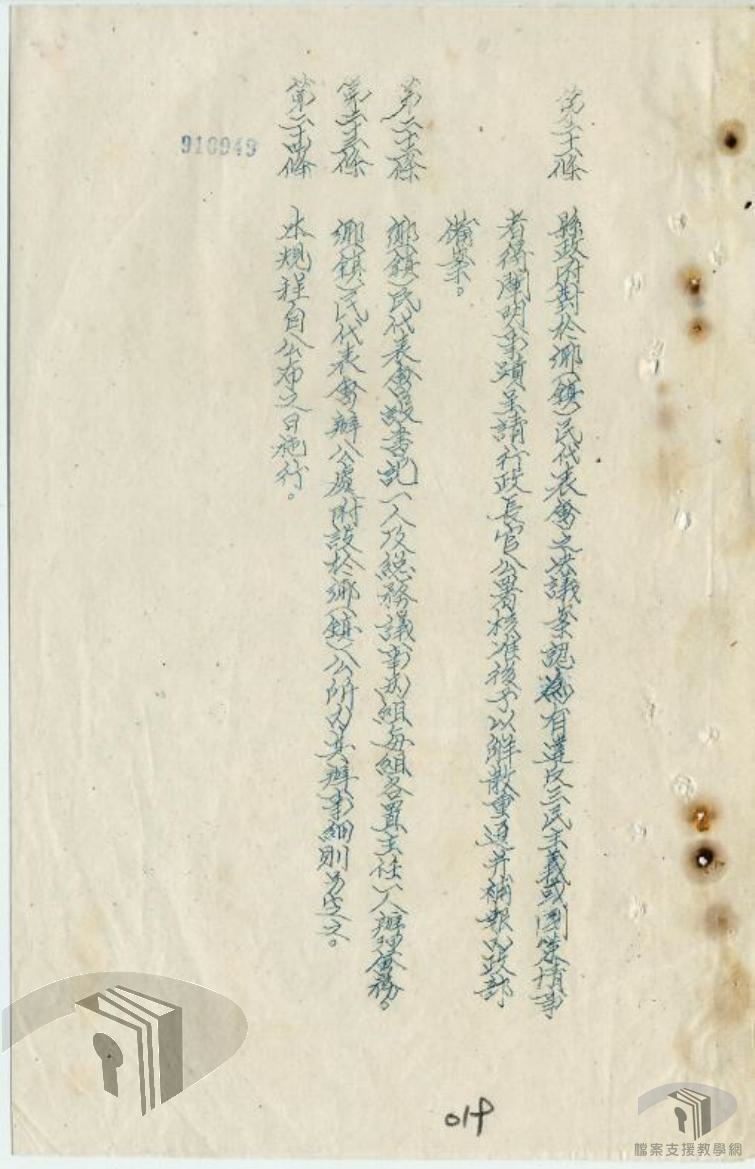 第二十一條 縣政府對於鄉(鎮)民代表會之決議案認為有違反三民主義或國策情事
者得開明事蹟呈請行政長官公署核准後予以解散重選并補報內政部
備案。
第二十二條 鄉(鎮)民代表會設書記一人及總務議事兩組每組各置主任一人辦理會務。
第二十三條 鄉(鎮)民代表會辦公處附設於鄉(鎮)公所內其辦事細則另定之。
第二十四條 本規程自公布之日施行。
910949
019
檔案支援教學網